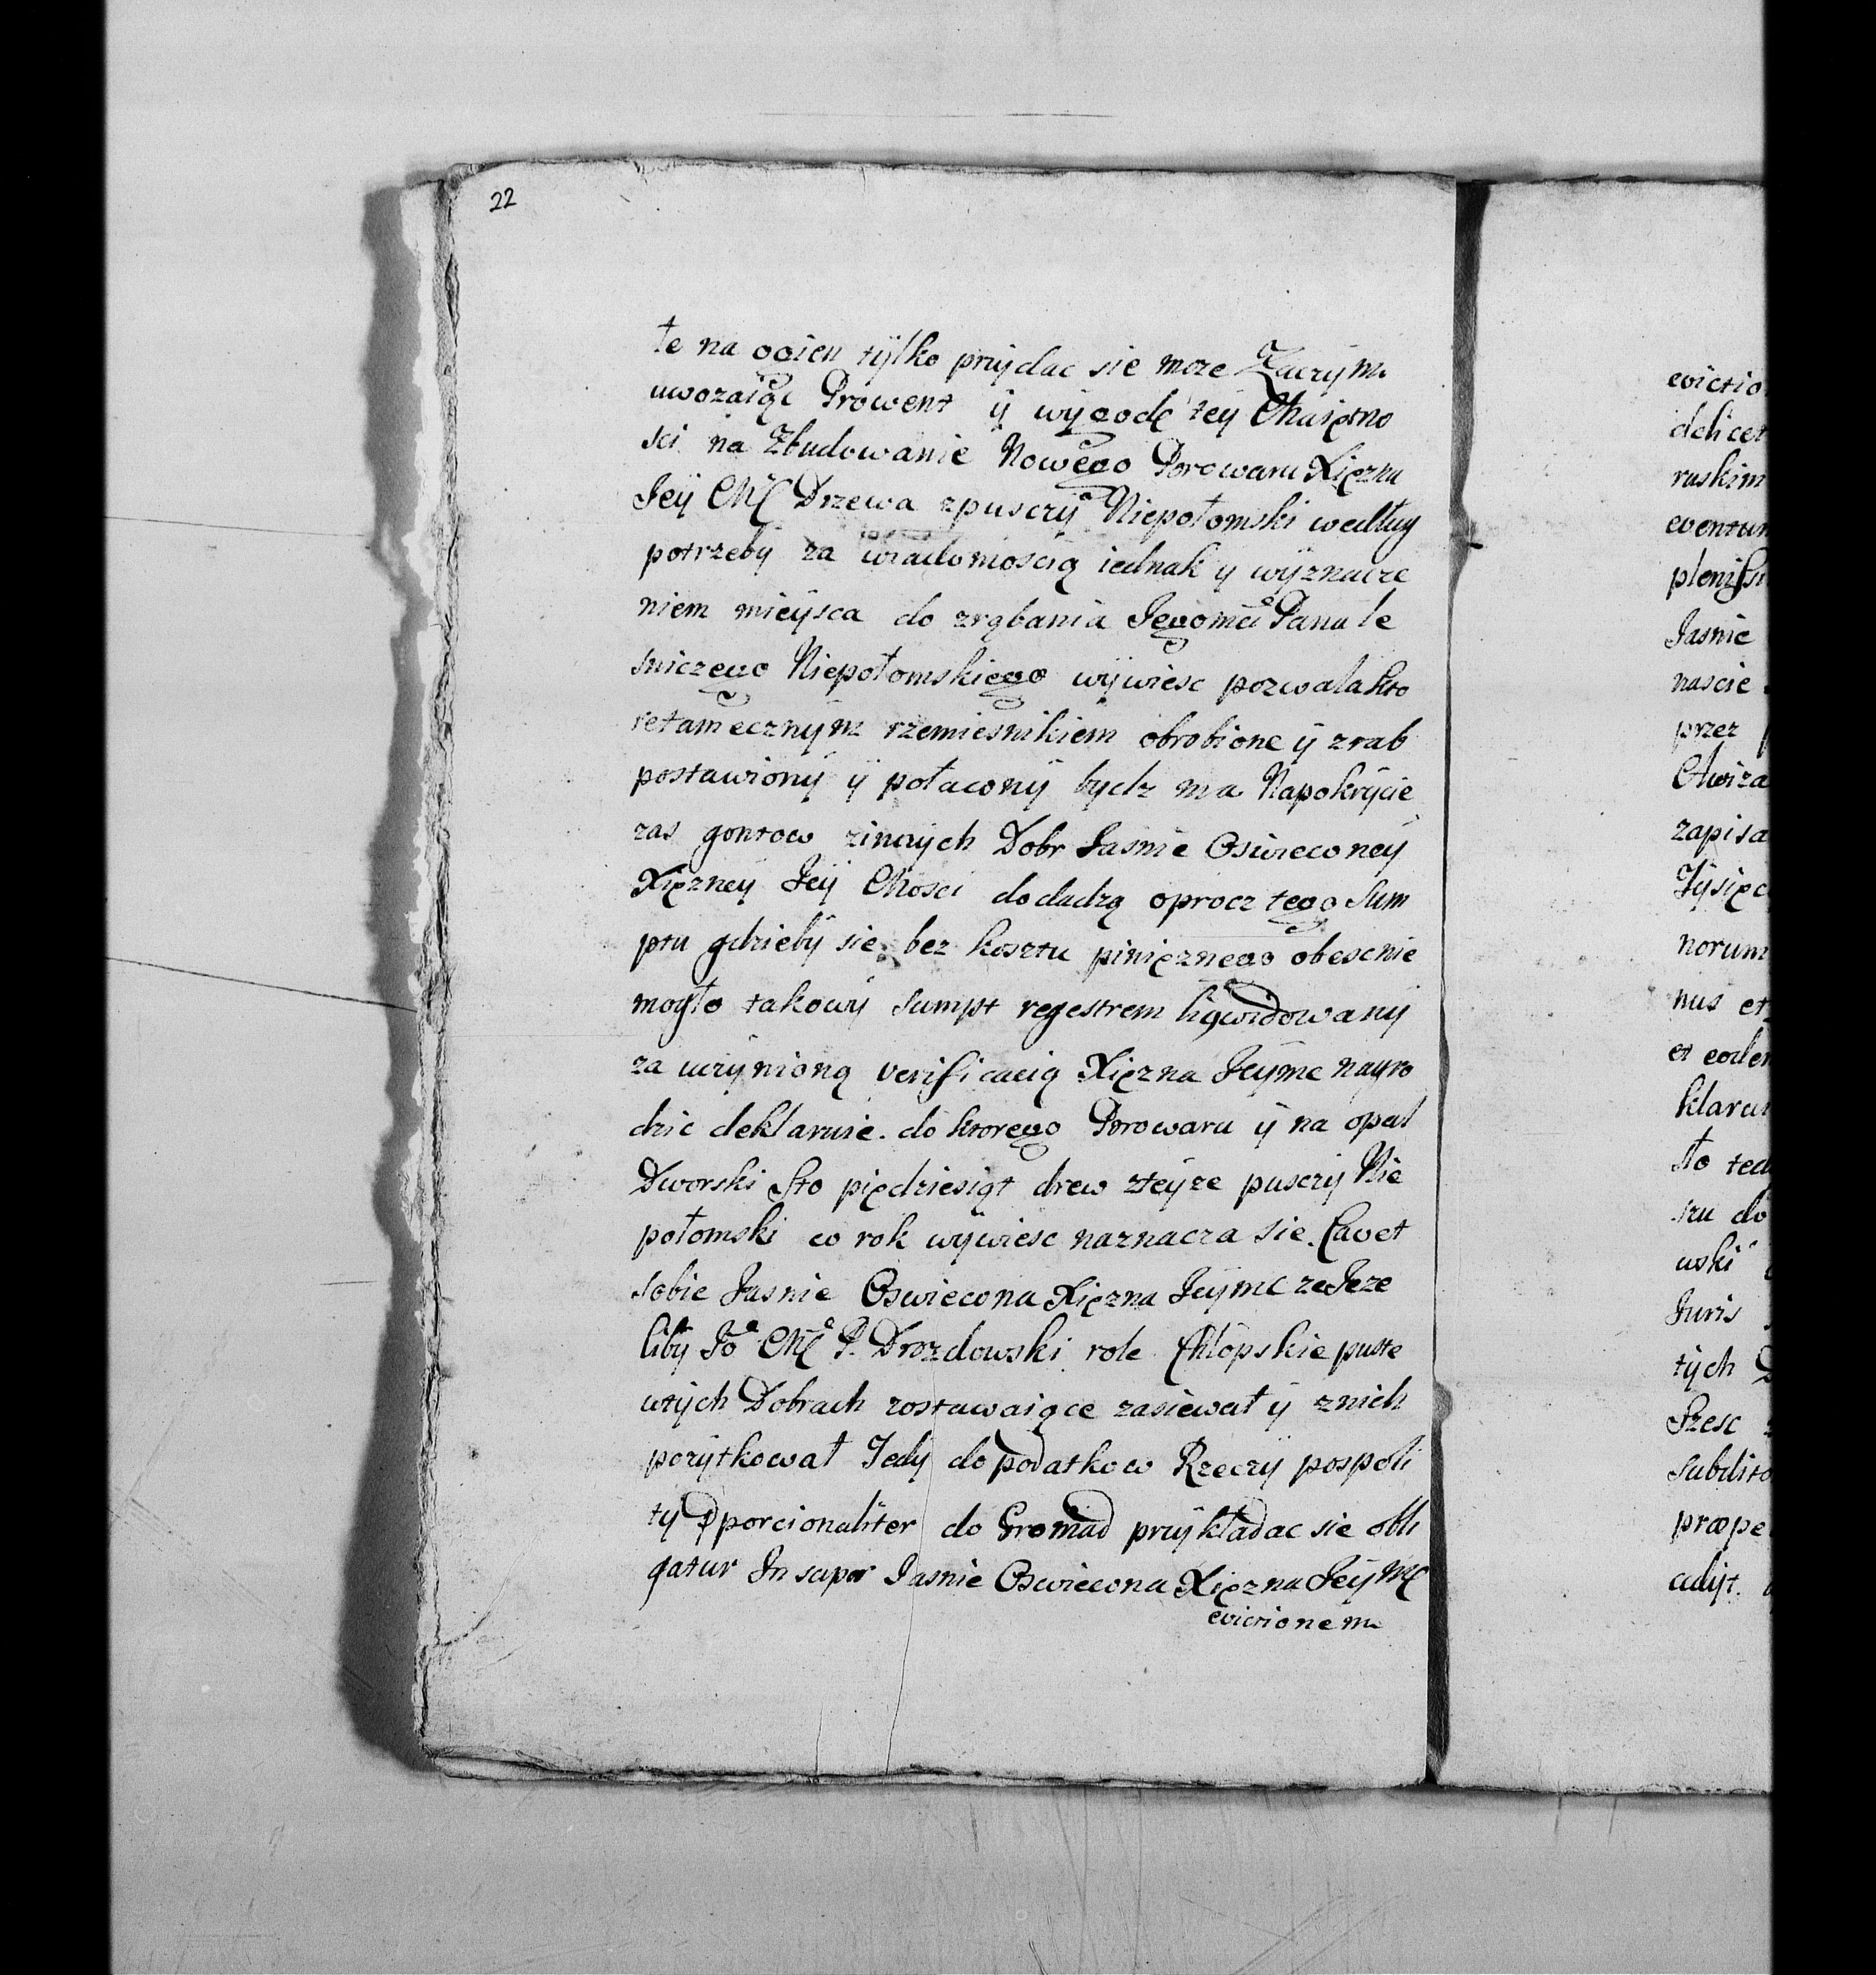 22
te na ogien tylko przydac sie moze Zaczym
uwozaiąc Prowent y wygodę tey Maiętno
sci na Zbudowanie Nowego Browaru Xięzna
Jey Mć Drzewa zpusczy Niepołomski według
potrzeby za wiadomoscią iednak y wyznacze
niem mieysca do zrąbania Jegomci Pana le
sniczego Niepołomskiego wywiesc pozwala kto
re tamecznym rzemiesnikiem obrobione y zrab
postawiony y połacony bydz ma Na pokrycie
zas gontow zinnych Dobr Jasnie Oswieconey
Xięzney Jey Mosci dodadzą oprocz tego Sum
ptu gdzieby sie bez kosztu pinięznego obescnie
mogło takowy Sumpt regestrem liqwidowany
za uczynioną verificacią Xięzna Jeymc nagro
dzic deklaruie. do ktorego Browaru y na opal
Dworski Sto piędziesiąt drew zteyze pusczy Nie
połomski co rok wywiesc naznacza sie. Cavet
sobie Jasnie Oswiecona Xięzna Jeymc ze Jeze
liby Jo Mć P. Drozdowski role Chłopskie puste
wtych Dobrach zostawaiące zasiewał y znich
pozytkował Tedy do podatkow Rzeczy pospoli
ty pporcionaliter do Gromad przykładac sie obli
gatur Insuper Jasnie Oswiecona Xięzna Jeymć
evictionem
evictio
delicet
ruskim
eventum
Jasnie
nascie
przez
zapisa
Tysięc
norum
nus et
et eodem
sto ted
szu do
wski
Juris
tych D
Szesc
Subdito
præpe